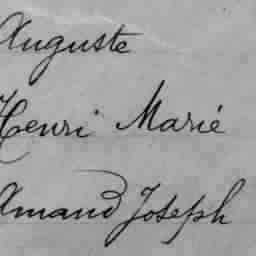 Auguste
Henri Marié
Amand Joseph